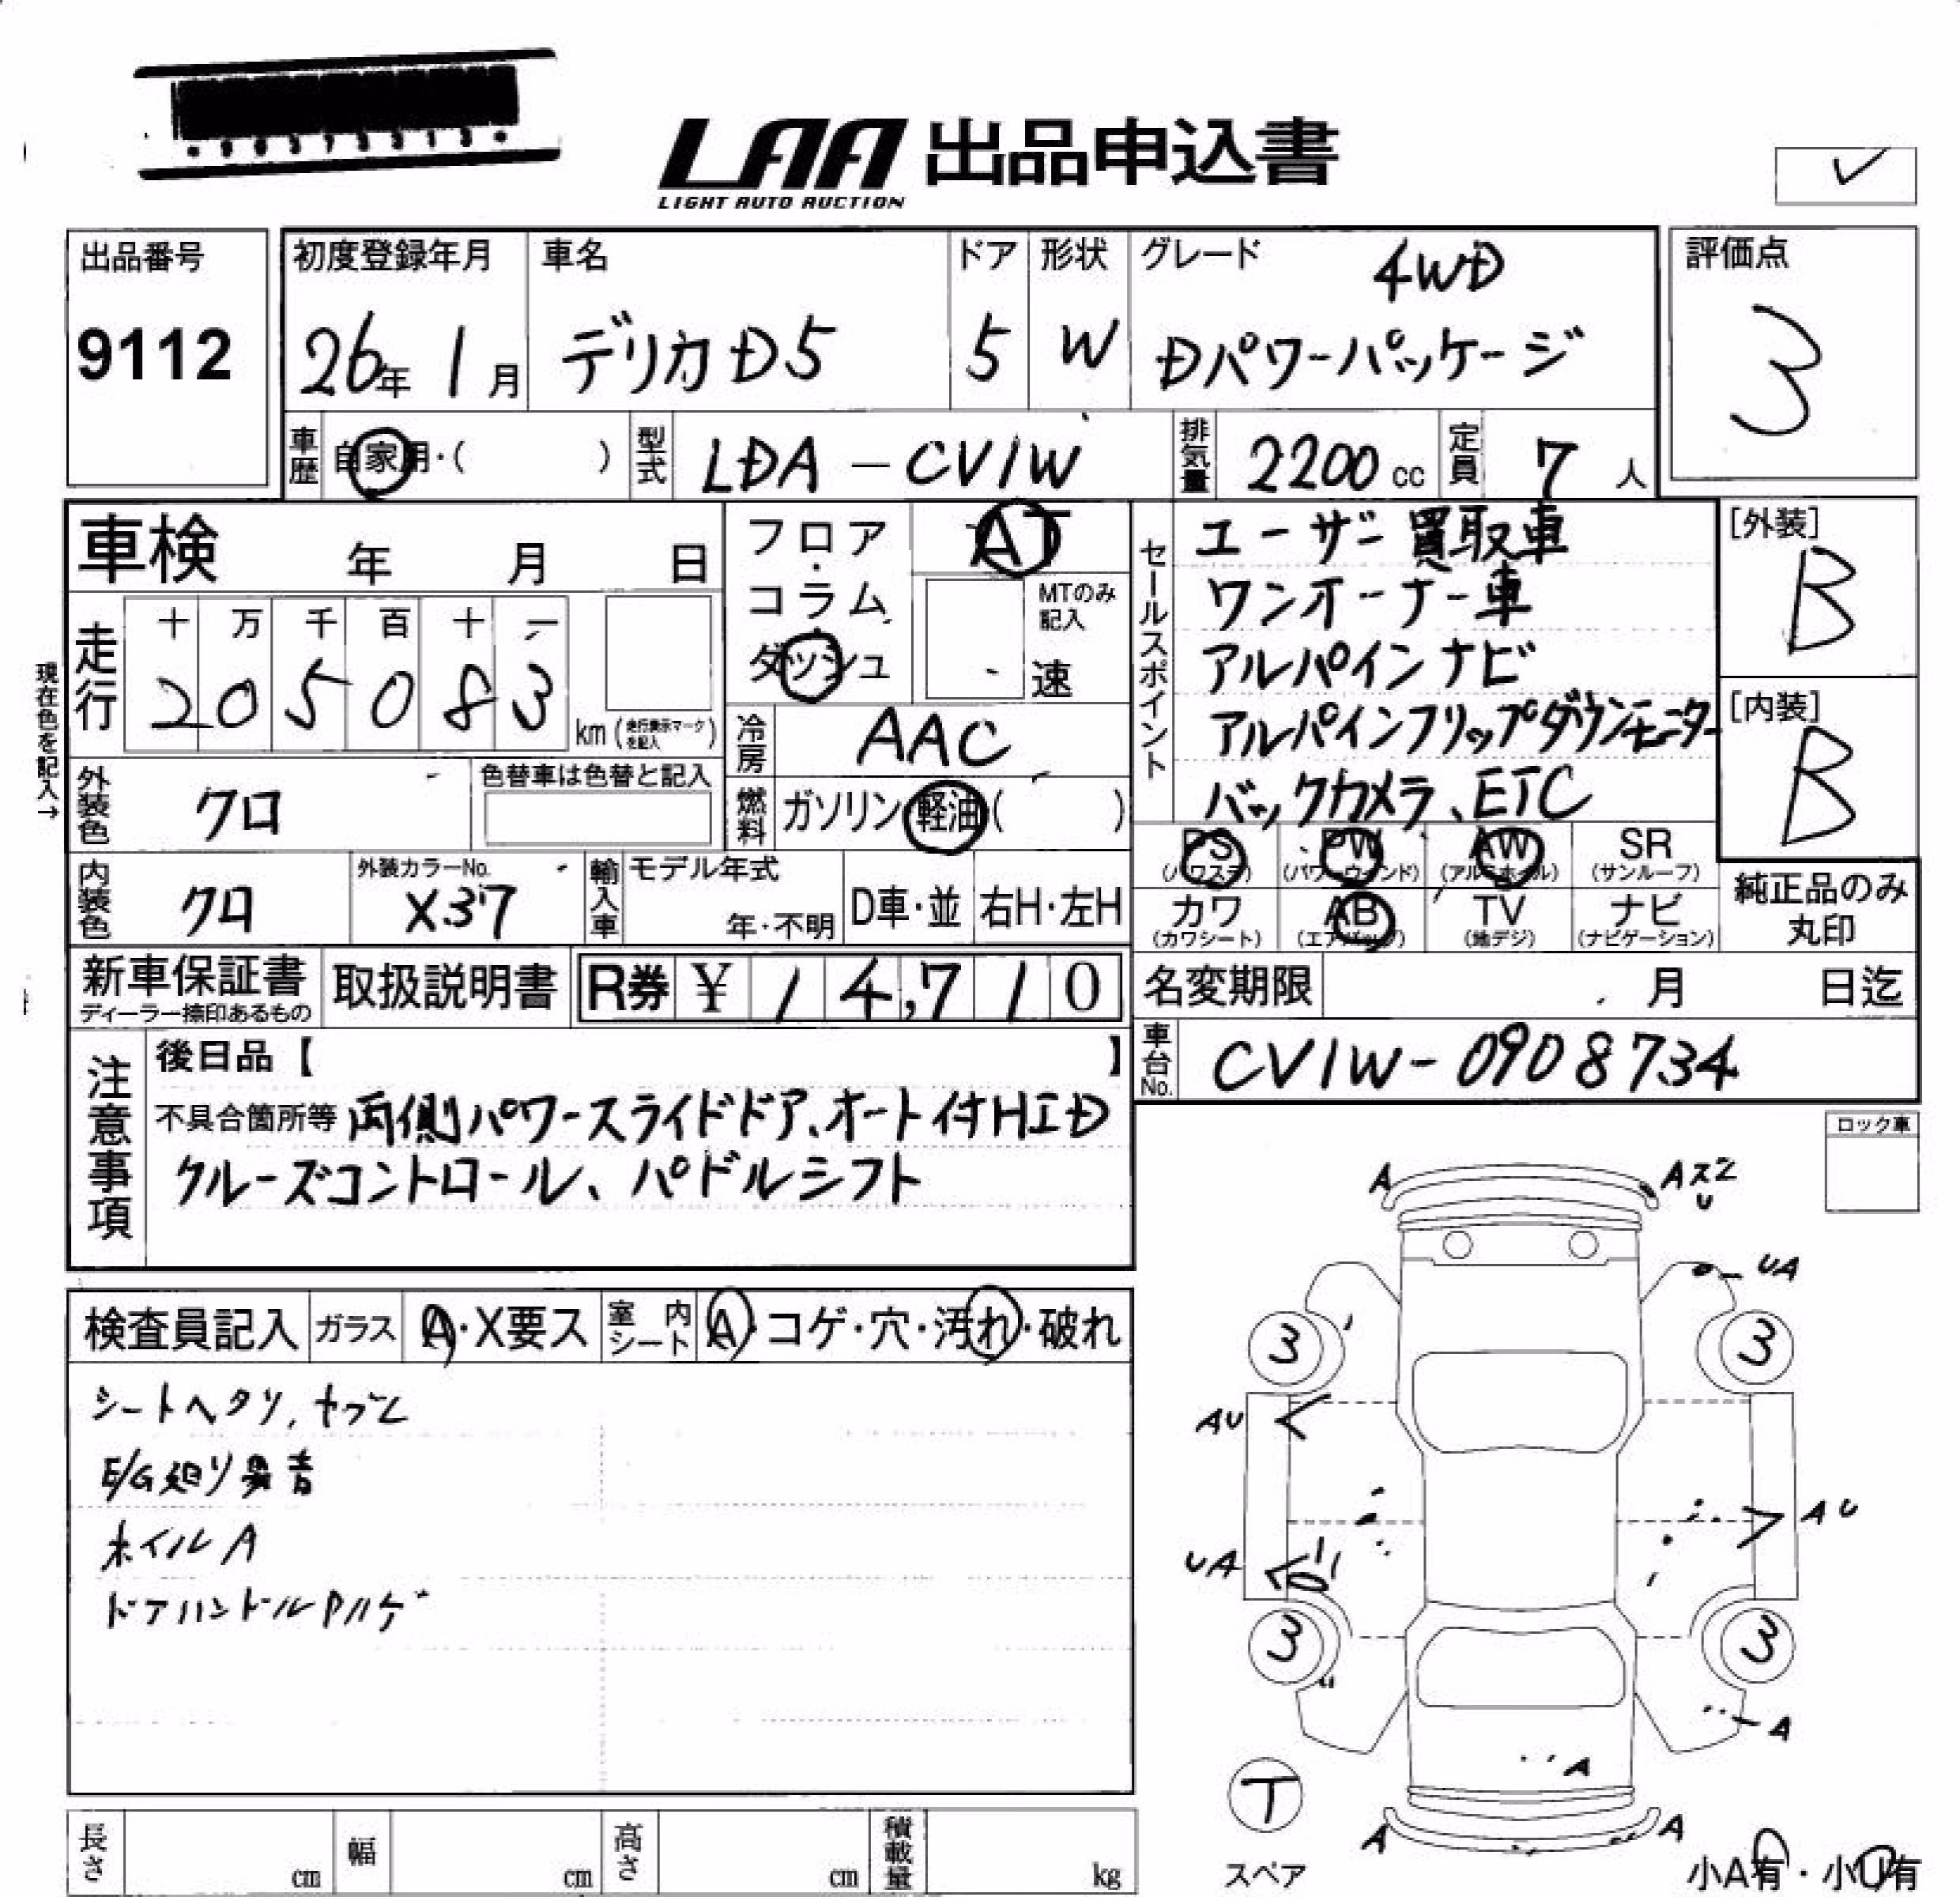 LAA 出品申込書
LIGHT AUTO AUCTION
✓
出品番号
9112
初度登録年月
26年 1月
車名
デリカD5
ドア
5
形状
W
グレード
4WD
Dパワーパッケージ
評価点
3
車歴 自家用・( )
型式 LDA-CV1W
排気量 2200cc
定員 7人
車検 年 月 日
走行
十 万 千 百 十 一
2 0 5 0 8 3
km(走行表示マークを記入)
現在色を記入→
外装色 クロ
色替車は色替と記入
内装色 クロ
外装カラーNo.
X37
フロア・コラム・ダッシュ
AT
MTのみ記入
速
冷房 AAC
燃料 ガソリン 軽油 ( )
輸入車
モデル年式
年・不明
D車・並
右H・左H
セールスポイント
ユーザー買取車
ワンオーナー車
アルパインナビ
アルパインフリップダウンモニター
バックカメラ、ETC
[外装]
B
[内装]
B
PS (パワステ)
PW (パワーウィンド)
AW (アルミホイル)
SR (サンルーフ)
カワ (カワシート)
AB (エアバッグ)
TV (地デジ)
ナビ (ナビゲーション)
純正品のみ
丸印
新車保証書
ディーラー捺印あるもの
取扱説明書
R券 ¥ 14,710
名変期限 月 日迄
車台No. CV1W-0908734
注意事項
後日品【 】
不具合箇所等 両側パワースライドドア、オート付HID
クルーズコントロール、パドルシフト
ロック車
検査員記入
ガラス A・X要ス
室内シート A・コゲ・穴・汚れ・破れ
シートヘタリ、
E/G廻り異音
ホイルA
ドアハンドルPハゲ
A
Aスレ
U
UA
3
3
AU
AU
UA
3
3
A
A
A
A
T
スペア
小A有・小U有
長さ cm
幅 cm
高さ cm
積載量 kg